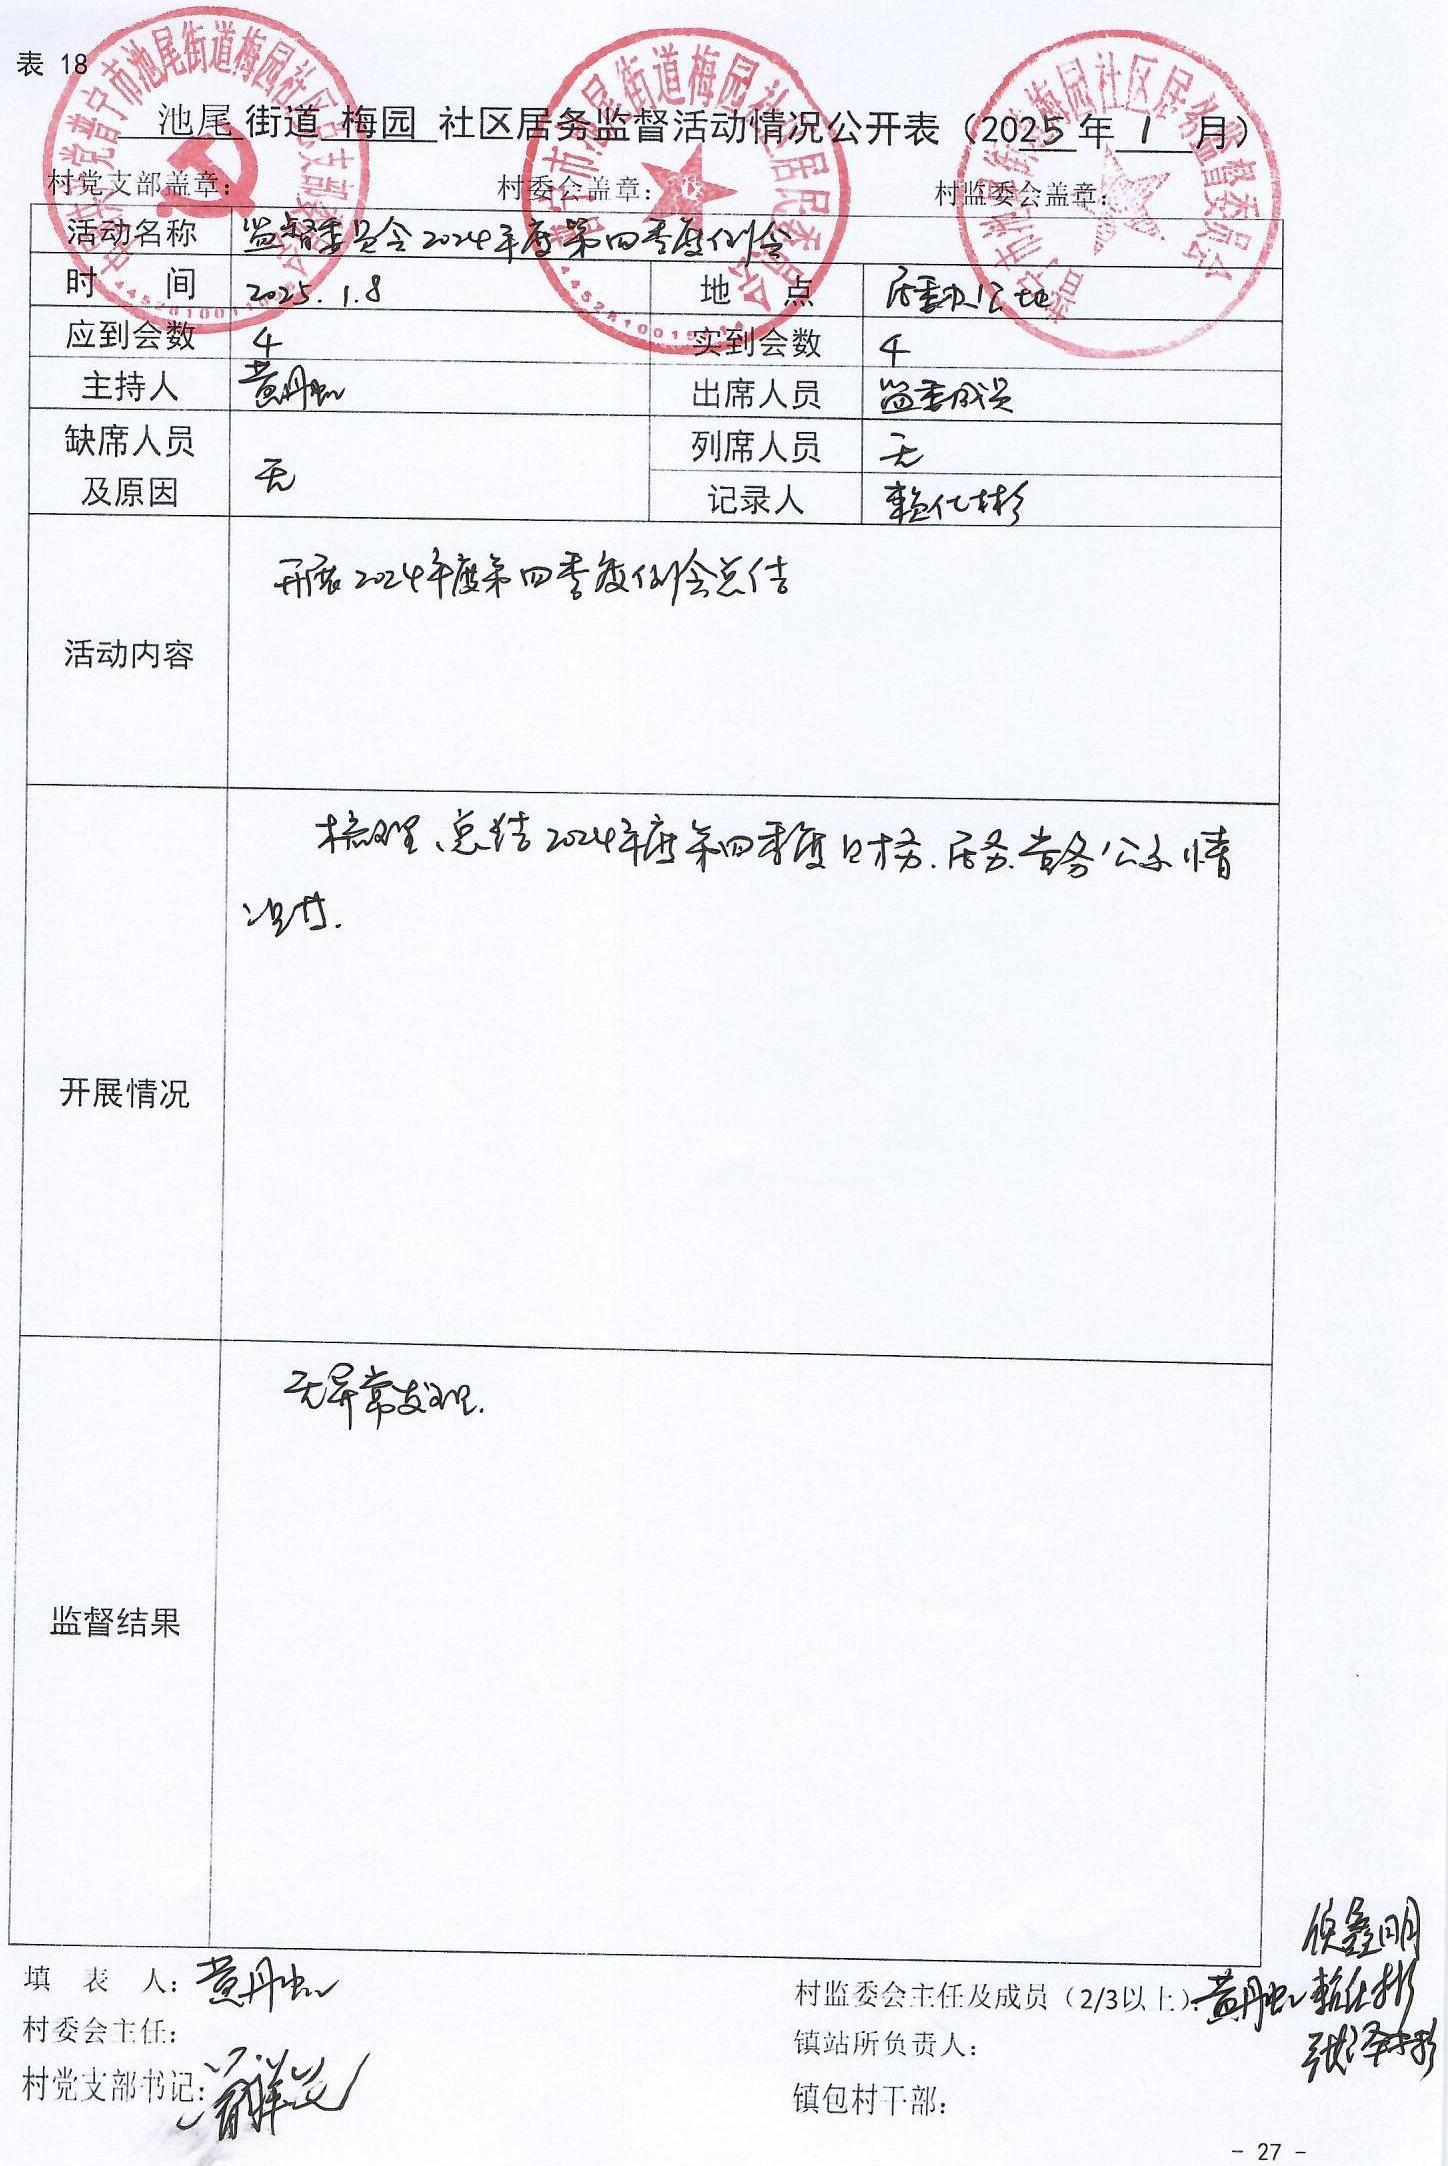 表 18
池尾 街道 梅园 社区居务监督活动情况公开表（2025 年 1 月）
村党支部盖章： 村委会盖章： 村监委会盖章：
活动名称 监督委员会2024年度第四季度例会
时 间 2025.1.8 地 点 居委办公地
应到会数 4 实到会数 4
主持人 黄丹虹 出席人员 监委成员
缺席人员及原因 无 列席人员 无
记录人 赖化彬
活动内容 开展2024年度第四季度例会总结
开展情况 梳理、总结2024年度第四季度财务、居务、党务公示情
况等.
监督结果 无异常发现.
填 表 人：黄丹虹 村监委会主任及成员（2/3以上）：黄丹虹
村委会主任： 镇站所负责人：
村党支部书记： 镇包村干部：
- 27 -